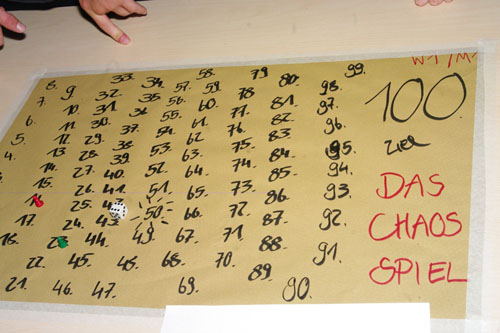 8. 33. 34. 57. 58. 79 80. 99.
7. 9. 32. 35. 56. 59. 78 98.
6. 10. 31. 36. 55. 60. 77. 81 97.
5. 11. 30. 37. 54. 61. 76. 82. 96.
4. 12. 29. 38. 53. 62. 75. 83. 95.
13. 28. 39. 52. 63. 74. 84. 94.
14. 27. 40. 51. 64. 73. 85. 93.
15. 26. 41. 50. 65. 72. 86. 92.
25. 66. 87.
17. 24. 43. 49. 67. 71. 88. 91.
44. 48. 68. 70. 89.
22. 45. 69. 90.
21. 46. 47.
100.
Ziel
DAS
CHAOS
SPIEL